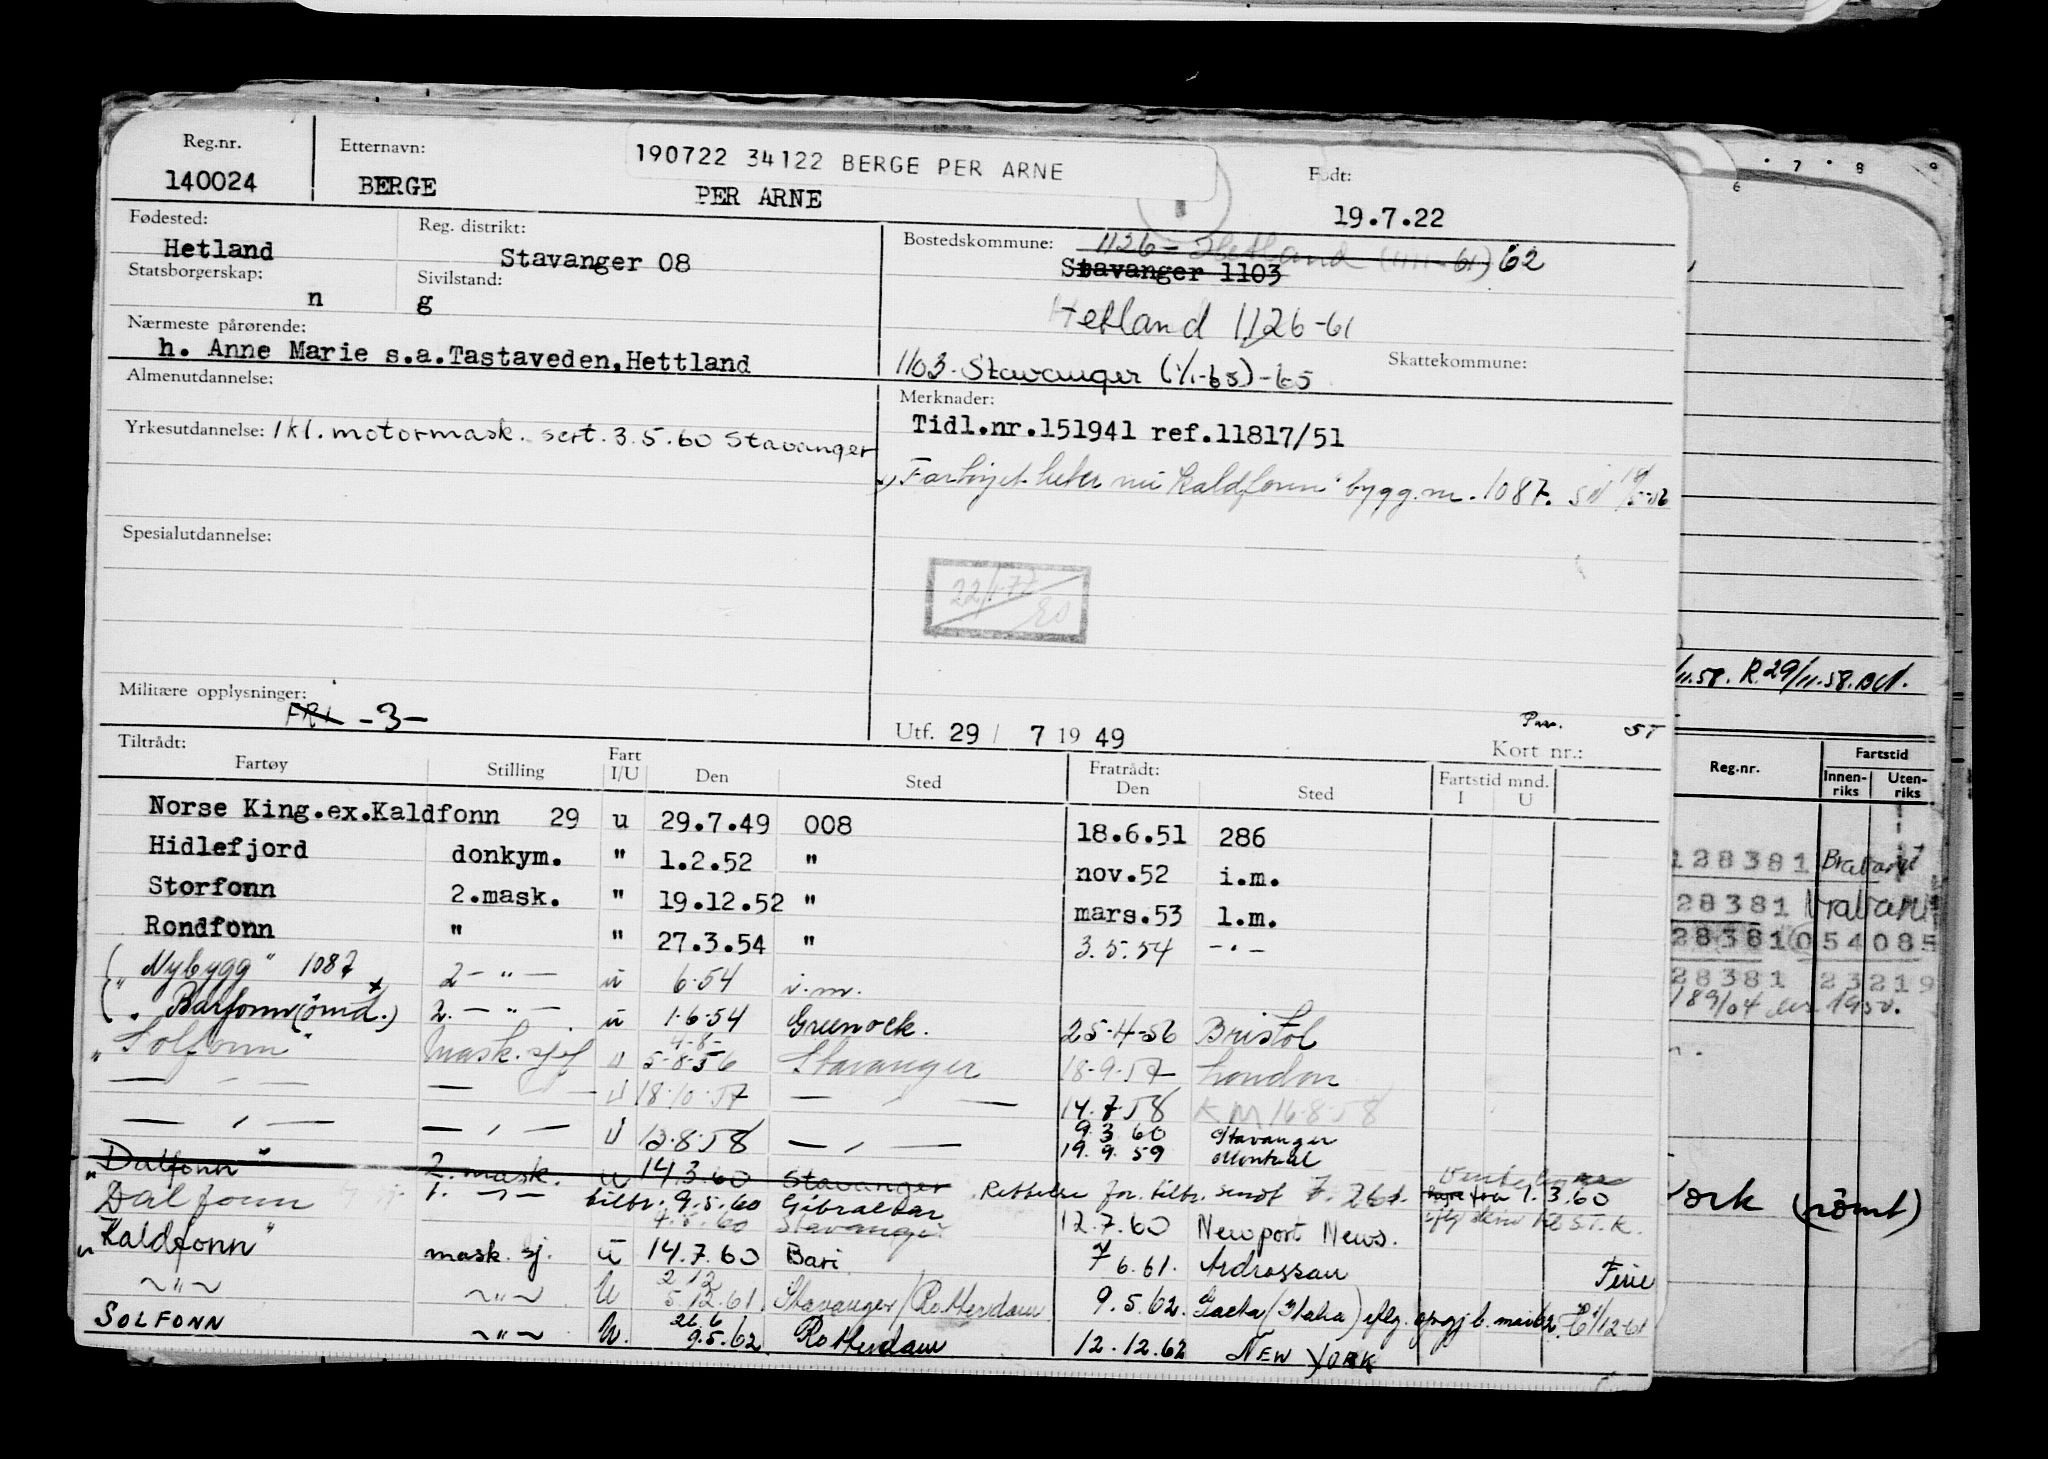 Reg.nr. Etternavn: 190722 34122 BERGE PER ARNE Født:
140024 BERGE PER ARNE 19.7.22
Fødested: Reg. distrikt: Bostedskommune: 1126 - Hetland (1/1-61) 62
Hetland Stavanger 08 Stavanger 1103
Statsborgerskap: Sivilstand:
n g Hetland 1126-61
Nærmeste pårørende: Skattekommune:
h. Anne Marie s.a.Tastaveden,Hettland 1103. Stavanger (1/1-65)-65
Almenutdannelse: Merknader:
Tidl.nr.151941 ref.11817/51
Yrkesutdannelse: 1 kl. motormask. sert. 3.5.60 Stavanger
x) Fartöyet heter nu "Kaldfonn" bygg.nr. 1087.
Spesialutdannelse:
Militære opplysninger:
FRI -3-
Utf. 29 / 7 1949 Kort nr.: ST
/11.58. R.29/11.58.
Tiltrådt: Fart Fratrådt: Fartstid mnd.
Fartøy Stilling I/U Den Sted Den Sted I U
Reg.nr. Fartstid
Innen-riks Uten-riks
Norse King.ex.Kaldfonn 29 u 29.7.49 008 18.6.51 286
Hidlefjord donkym. " 1.2.52 " nov.52 i.m.
Storfonn 2.mask. " 19.12.52 " mars.53 l.m.
Rondfonn " " 27.3.54 " 3.5.54 -"-
("Nybygg" 1087 2-"- u 6.54 i.m.
(" Barfonn (ömd.) x 2.-"- u 1.6.54 Greenock. 25-4-56 Bristol
"Solfonn" Mask.sjef U 4-8- 5-8-56 Stavanger 18-9-57 London
— " — — — U 18.10.57 — " — 14.7.58 KM 16.8.58
— " — — " — U 12.8.58 — " — 9.3.60 Stavanger
19.9.59 Montreal
"Dalfonn" 2. mask. u 14.3.60 Stavanger
"Dalfonn 1. -"- tilbr. 9.5.60 Gibraltar Rettelse for. tilbr. sendt fra 1.3.60
4.5.60 Stavanger 12.7.60 Newport News.
"Kaldfonn" mask. sj. u 14.7.60 Bari 7 6.61. Ardrossan Ferie
~"~ ~"~ U 2 12 5.12.61. Stavanger/Rotterdam 9.5.62. Gaeta (Italia)
SOLFONN ~"~ U. 26.6 9.5.62. Rotterdam 12.12.62 NEW YORK
128381 Brabant
28381 Brabant
28381 054085
28381 23219
189/04 1950.
York (rømt)